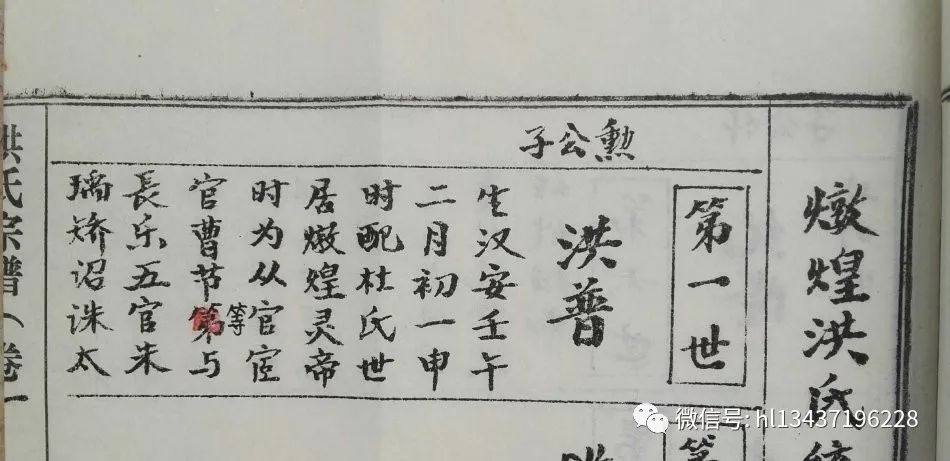 燉煌洪氏統
勲公子
第一世
洪普
生汉安壬午
二月初一申
时配杜氏世
居燉煌灵帝
时为从官宦
官曹节第等与
長乐五官朱
瑀矫诏诛太
洪氏宗譜（卷一
微信号: hl13437196228